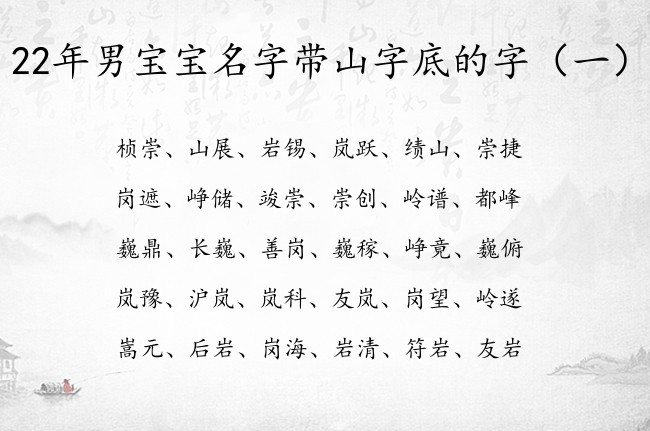 22年男宝宝名字带山字底的字（一）
桢崇、山展、岩锡、岚跃、绩山、崇捷
岗遮、峥储、竣崇、崇创、岭谱、都峰
巍鼎、长巍、善岗、巍稼、峥竟、巍俯
岚豫、沪岚、岚科、友岚、岗望、岭遂
嵩元、后岩、岗海、岩清、符岩、友岩